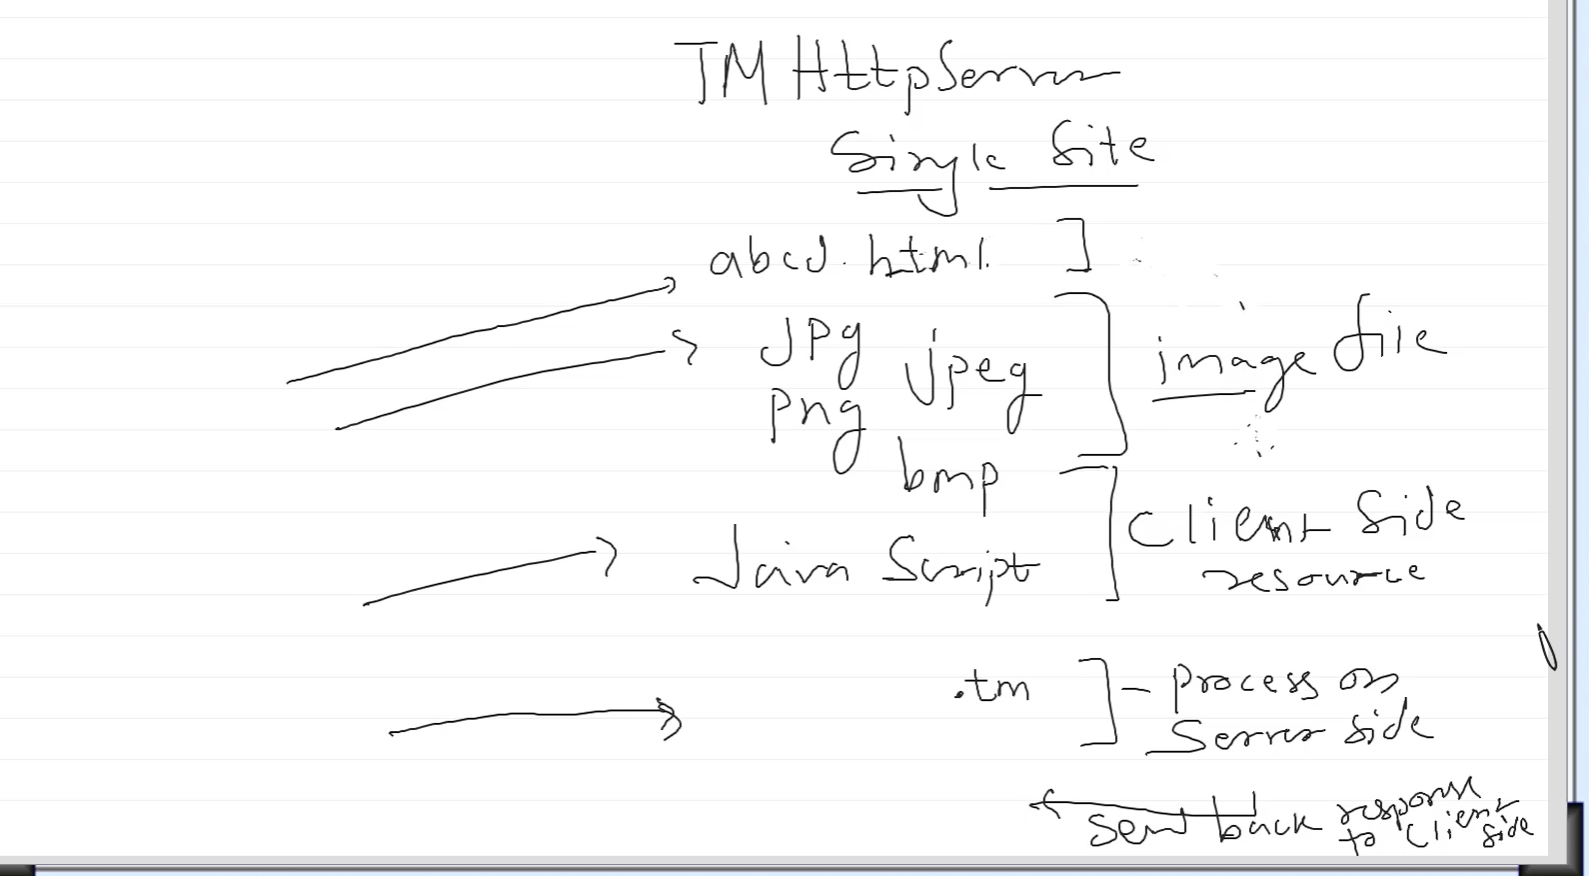 TM HttpServer
Single Site
abcd.html
JPg jpeg
png
image file
bmp
Java Script
Client Side
resource
.tm
- Process on
Server side
send back response
to client
side